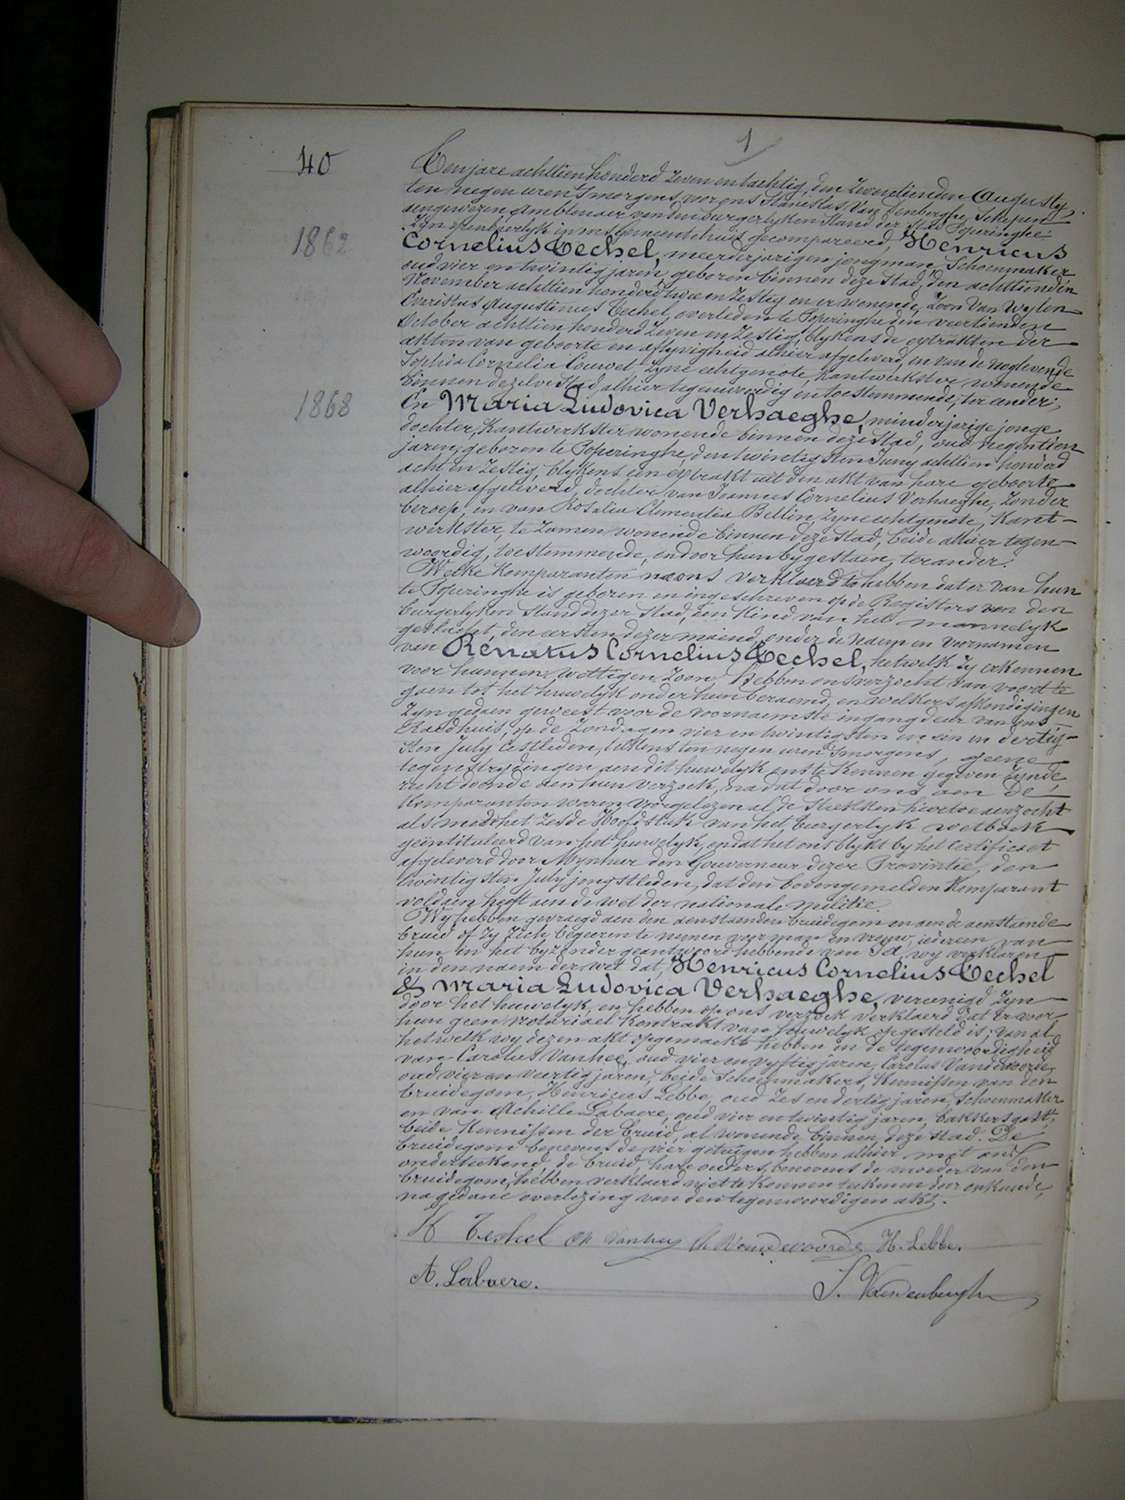 1
40
Ten jare achttien honderd zeven en tachtig, den zeventienden Augusty
ten negen uren 's morgens, voor ons Stanislas Van den Berghe, Schepen
aengewezen Ambtenaer van den burgerlyken Stand der Stad Poperinghe
Zyn openbaerlyk in ons gemeentehuis gecompareerd, Henricus
1862
Cornelius Techel, meerderjarigen jongman, Schoenmaker
oud vier en twintig jaren, geboren binnen deze Stad, den achttienden
November achttien honderd twee en zestig en er wonende, Zoon van wylen
Charles Augustinus Techel, overleden te Poperinghe den veertienden
October achttien honderd zeven en zestig, blykens de extrakten der
akten van geboorte en aflyvigheid alhier afgeleverd, en van de nog levende
Sophia Cornelia Couwet, zyne echtgenote, kantwerkster, wonende
binnen dezelve stad alhier tegenwoordig en toestemmende, ter eender;
1868
En Maria Ludovica Verhaeghe, minderjarige jonge
dochter, Kantwerkster wonende binnen deze stad, oud negentien
jaren, geboren te Poperinghe, den twintigsten Juny achttien honderd
acht en zestig, blykens een extrakt uit den akt van hare geboorte
alhier afgeleverd, dochter van Joannes Cornelius Verhaeghe, zonder
beroep, en van Rosalia Clementia Bellin, zyne echtgenote, Kant-
werkster, te zamen wonende binnen deze stad, beide alhier tegen-
woordig, toestemmende, en door hun bygestaen, ter ander.
Welke Komparanten na ons verklaerd te hebben dat er van hun
te Poperinghe is geboren en ingeschreven op de Registers van den
burgerlyken Stand dezer Stad, een Kind van het mannelyk
geslacht, den eersten dezer maend, onder de naem en voornamen
van Renatus Cornelius Techel, hetwelk zy erkennen
voor hunnen wettigen zoon, Hebben ons verzocht van voort te
gaen tot het huwelyk onder hun beraemd, en welkers afkondigingen
Zyn gedaen geweest voor de voornaemste ingangdeur van ons
Raedhuis, op de Zondagen vier en twintigsten en een en dertig-
sten July lestleden, telkens ten negen uren 's morgens, geene
tegenstrydingen aen dit huwelyk ons te kennen gegeven zynde
recht doende aen hun verzoek, na dat door ons aen de
Komparanten waren voorgelezen al de stukken hiertoe verzocht
als mede het zesde Hoofdstuk van het burgerlyk wetboek
geintituleerd van het huwelyk, en dat het ons blykt by het Certificaet
afgeleverd door Mynheer den Gouverneur dezer Provintie, den
twintigsten July jongstleden, dat den bovengemelden Komparant
voldaen heeft aen de wet der nationale militie.
Wy hebben gevraegd aen den aenstaenden bruidegom en aen de aenstaende
bruid of zy zich begeeren te nemen voor man en vrouw, iedereen van
hun in het byzonder geantwoord hebbende van Ja, wy verklaren
in den naem der wet dat, Henricus Cornelius Techel
& Maria Ludovica Verhaeghe, vereenigd zyn
door het huwelyk, en hebben op ons verzoek verklaerd dat er voor
hun geen notariael Kontrakt van houwelyk opgesteld is; van al
hetwelk wy dezen akt opgemaekt hebben in de tegenwoordigheid
van Carolus Vanhee, oud vier en vyftig jaren, Carolus Vandevoorde,
oud vier en veertig jaren, beide Schoenmakers, Kennissen van den
bruidegom, Henricus Lebbe, oud zes en dertig jaren, Schoenmaker
en van Achille Labaere, oud vier en twintig jaren, bakkersgast,
beide Kennissen der bruid, al wonende binnen deze Stad. De
bruidegom benevens de vier getuigen hebben alhier met ons
onderteekend, de bruid, hare ouders, benevens de moeder van den
bruidegom, hebben verklaerd niet te konnen teekenen door onkunde,
na gedane overlezing van den tegenwoordigen akt.
H Techel Ch Vanhee Ch Vandevoorde H. Lebbe.
A. Labaere. S. Vandenberghe